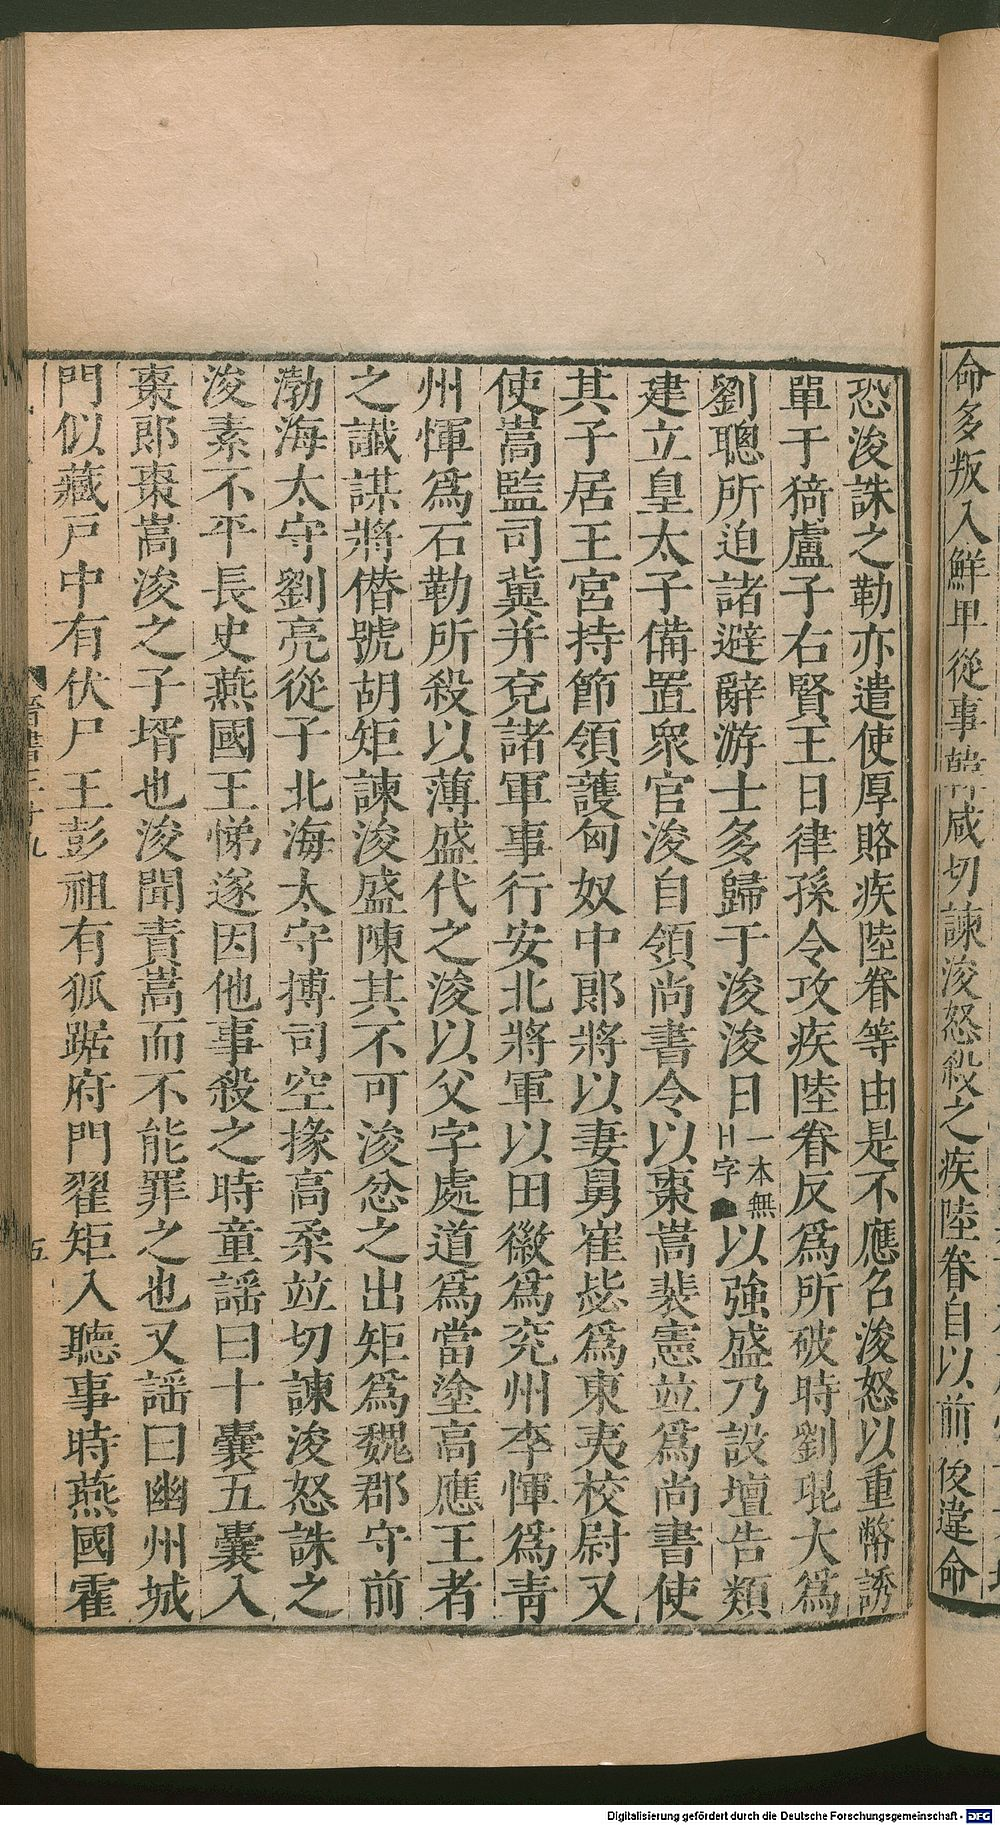 命多叛入鮮卑從事韓咸切諫浚怒殺之疾陸眷自以前後違命
恐浚誅之勒亦遣使厚賂疾陸眷等由是不應召浚怒以重幣誘
單于猗盧子右賢王日律孫令攻疾陸眷反爲所破時劉琨大爲
劉聰所迫諸避辭游士多歸于浚浚日一本無日字以強盛乃設壇告類
建立皇太子備置衆官浚自領尚書令以棗嵩裴憲並爲尚書使
其子居王宮持節領護匈奴中郎將以妻舅崔毖爲東夷校尉又
使嵩監司冀并兗諸軍事行安北將軍以田徽爲兗州李惲爲青
州惲爲石勒所殺以薄盛代之浚以父字處道爲當塗高應王者
之讖謀將僭號胡矩諫浚盛陳其不可浚忿之出矩爲魏郡守前
渤海太守劉亮從子北海太守搏司空掾高柔並切諫浚怒誅之
浚素不平長史燕國王悌遂因他事殺之時童謠曰十囊五囊入
棗郎棗嵩浚之子壻也浚聞責嵩而不能罪之也又謠曰幽州城
門似藏戶中有伏尸王彭祖有狐踞府門翟矩入聽事時燕國霍
五
Digitalisierung gefördert durch die Deutsche Forschungsgemeinschaft - DFG